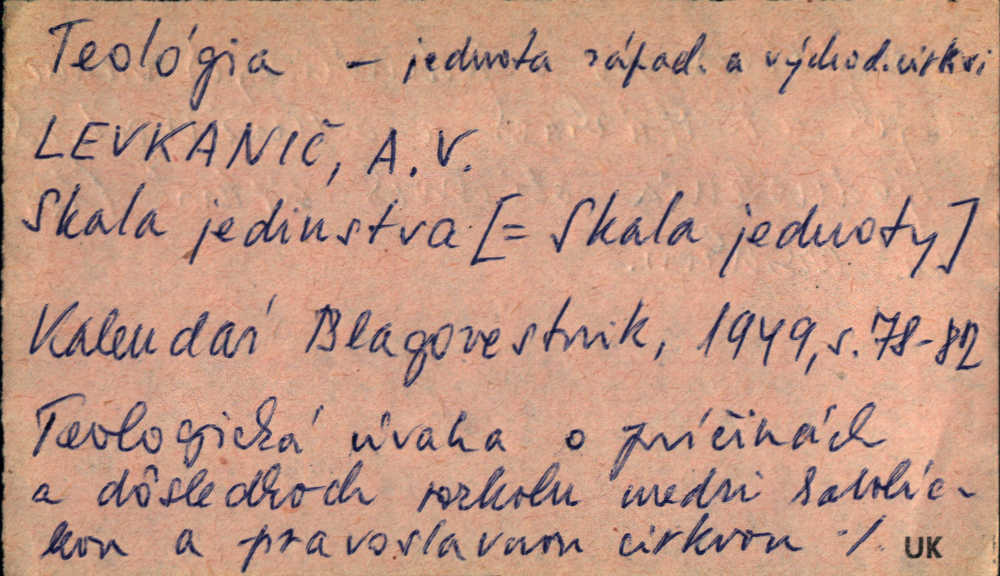 Teológia - jednota západ. a východ. cirkvi
LEVKANIČ, A. V.
Skala jedinstva [= Skala jednoty]
Kalendař Blagovestnik, 1949, s. 78-82
Teologická úvaha o príčinách
a dôsledkoch rozkolu medzi katolíc-
kou a pravoslavnou cirkvou ./.
UK